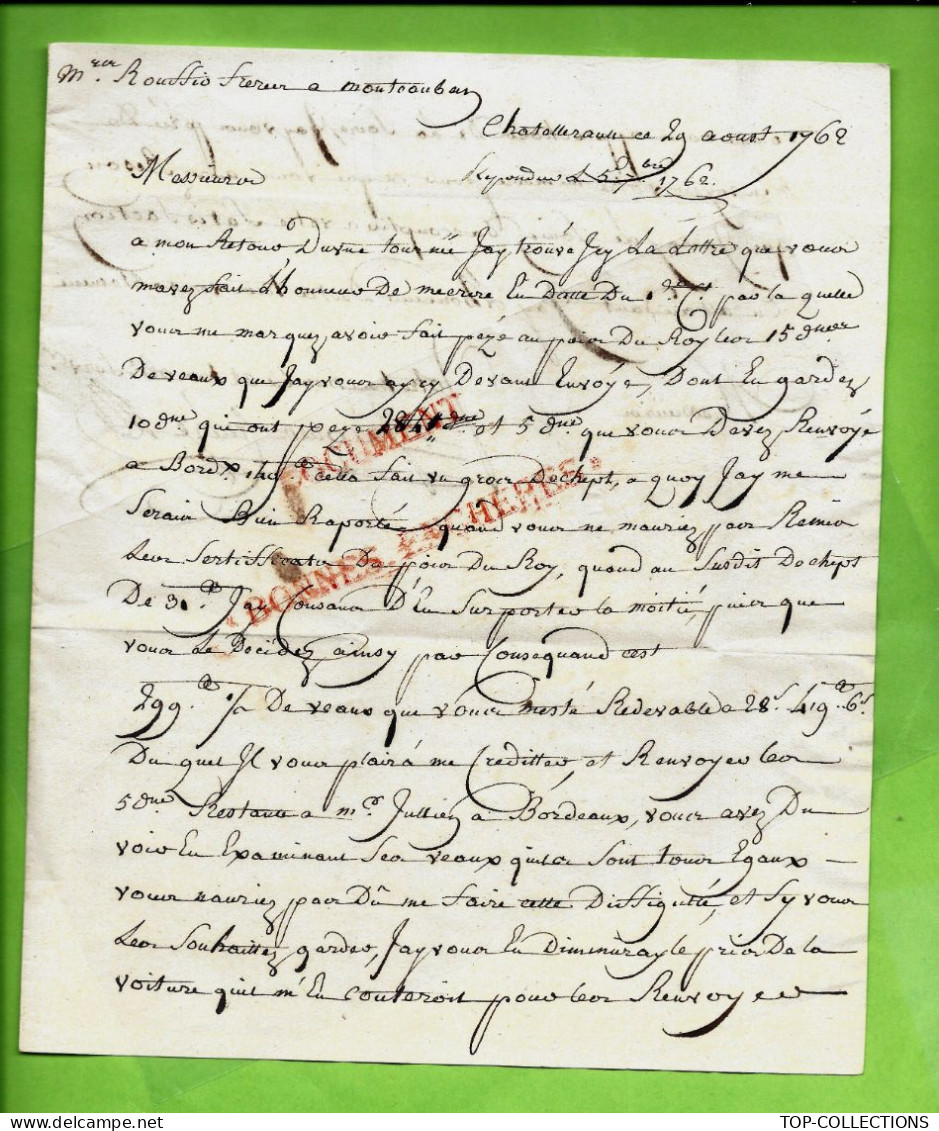 Mrs Rouffio freres a montauban
Chatellerault ce 29 aoust 1762
Messieurs Repondue Le 5e 7bre 1762.
a mon Retour D'une tournée Jay trouvé Jcy La Lettre que vous
mavez fait L'honneur De mecrire En Datte Du par la quelle
vous me marquez avoir fait pezé au poids Du Roy les 15 dnes
De veaux que Jay vous ay cy Devant Envoyé, Dont En gardez
10 dne qui ont pezé et 5 dne que vous Devez Renvoyé
a Bordx cella fait un gros Dechept, a quoy Jay me
Serais Bien Raporté quand vous ne mauriez pas Remis
Les Sertifficats Du poids Du Roy, quand au Susdit Dechept
De Jay Consans D'En Suporter la moitié, puis que
vous Le Decidez ainsy par Consequand cest
299 De veaux que vous meste Redevable a 28s 419 6s
Du quel Jl vous plaira me Crediter et Renvoyer les
5 dne Restante a mr Jullien a Bordeaux, vous avez Du
voir En Examinant Ses veaux quils Sont tous Egaux
vous nauriez pas Dû me faire cette Difficulté, et Sy vous
Les Souhaittez garder, Jay vous En Diminuray le prix De la
voiture quil m'En couteroit pour les Renvoyer
DOCUMENT
BONNES ENCHERES
TOP-COLLECTIONS